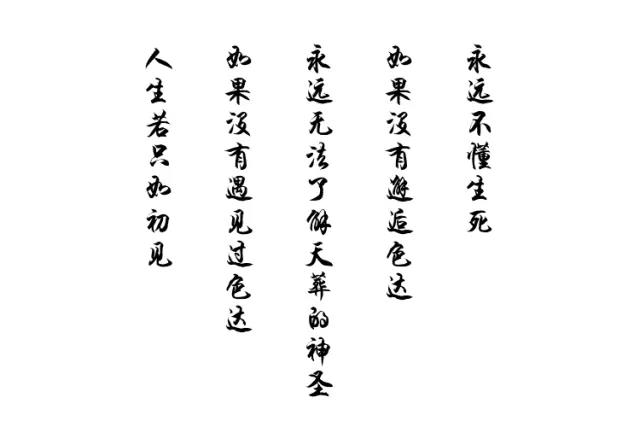 人生若只如初见
如果没有遇见过色达
永远无法了解天葬的神圣
如果没有邂逅色达
永远不懂生死